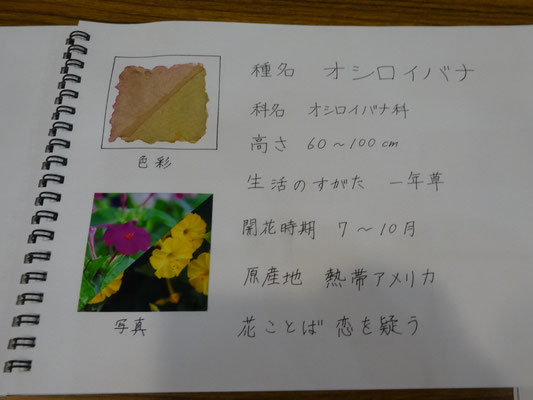 種名 オシロイバナ
科名 オシロイバナ科
高さ 60～100cm
生活のすがた 一年草
開花時期 7～10月
原産地 熱帯アメリカ
花ことば 恋を疑う
色彩
写真